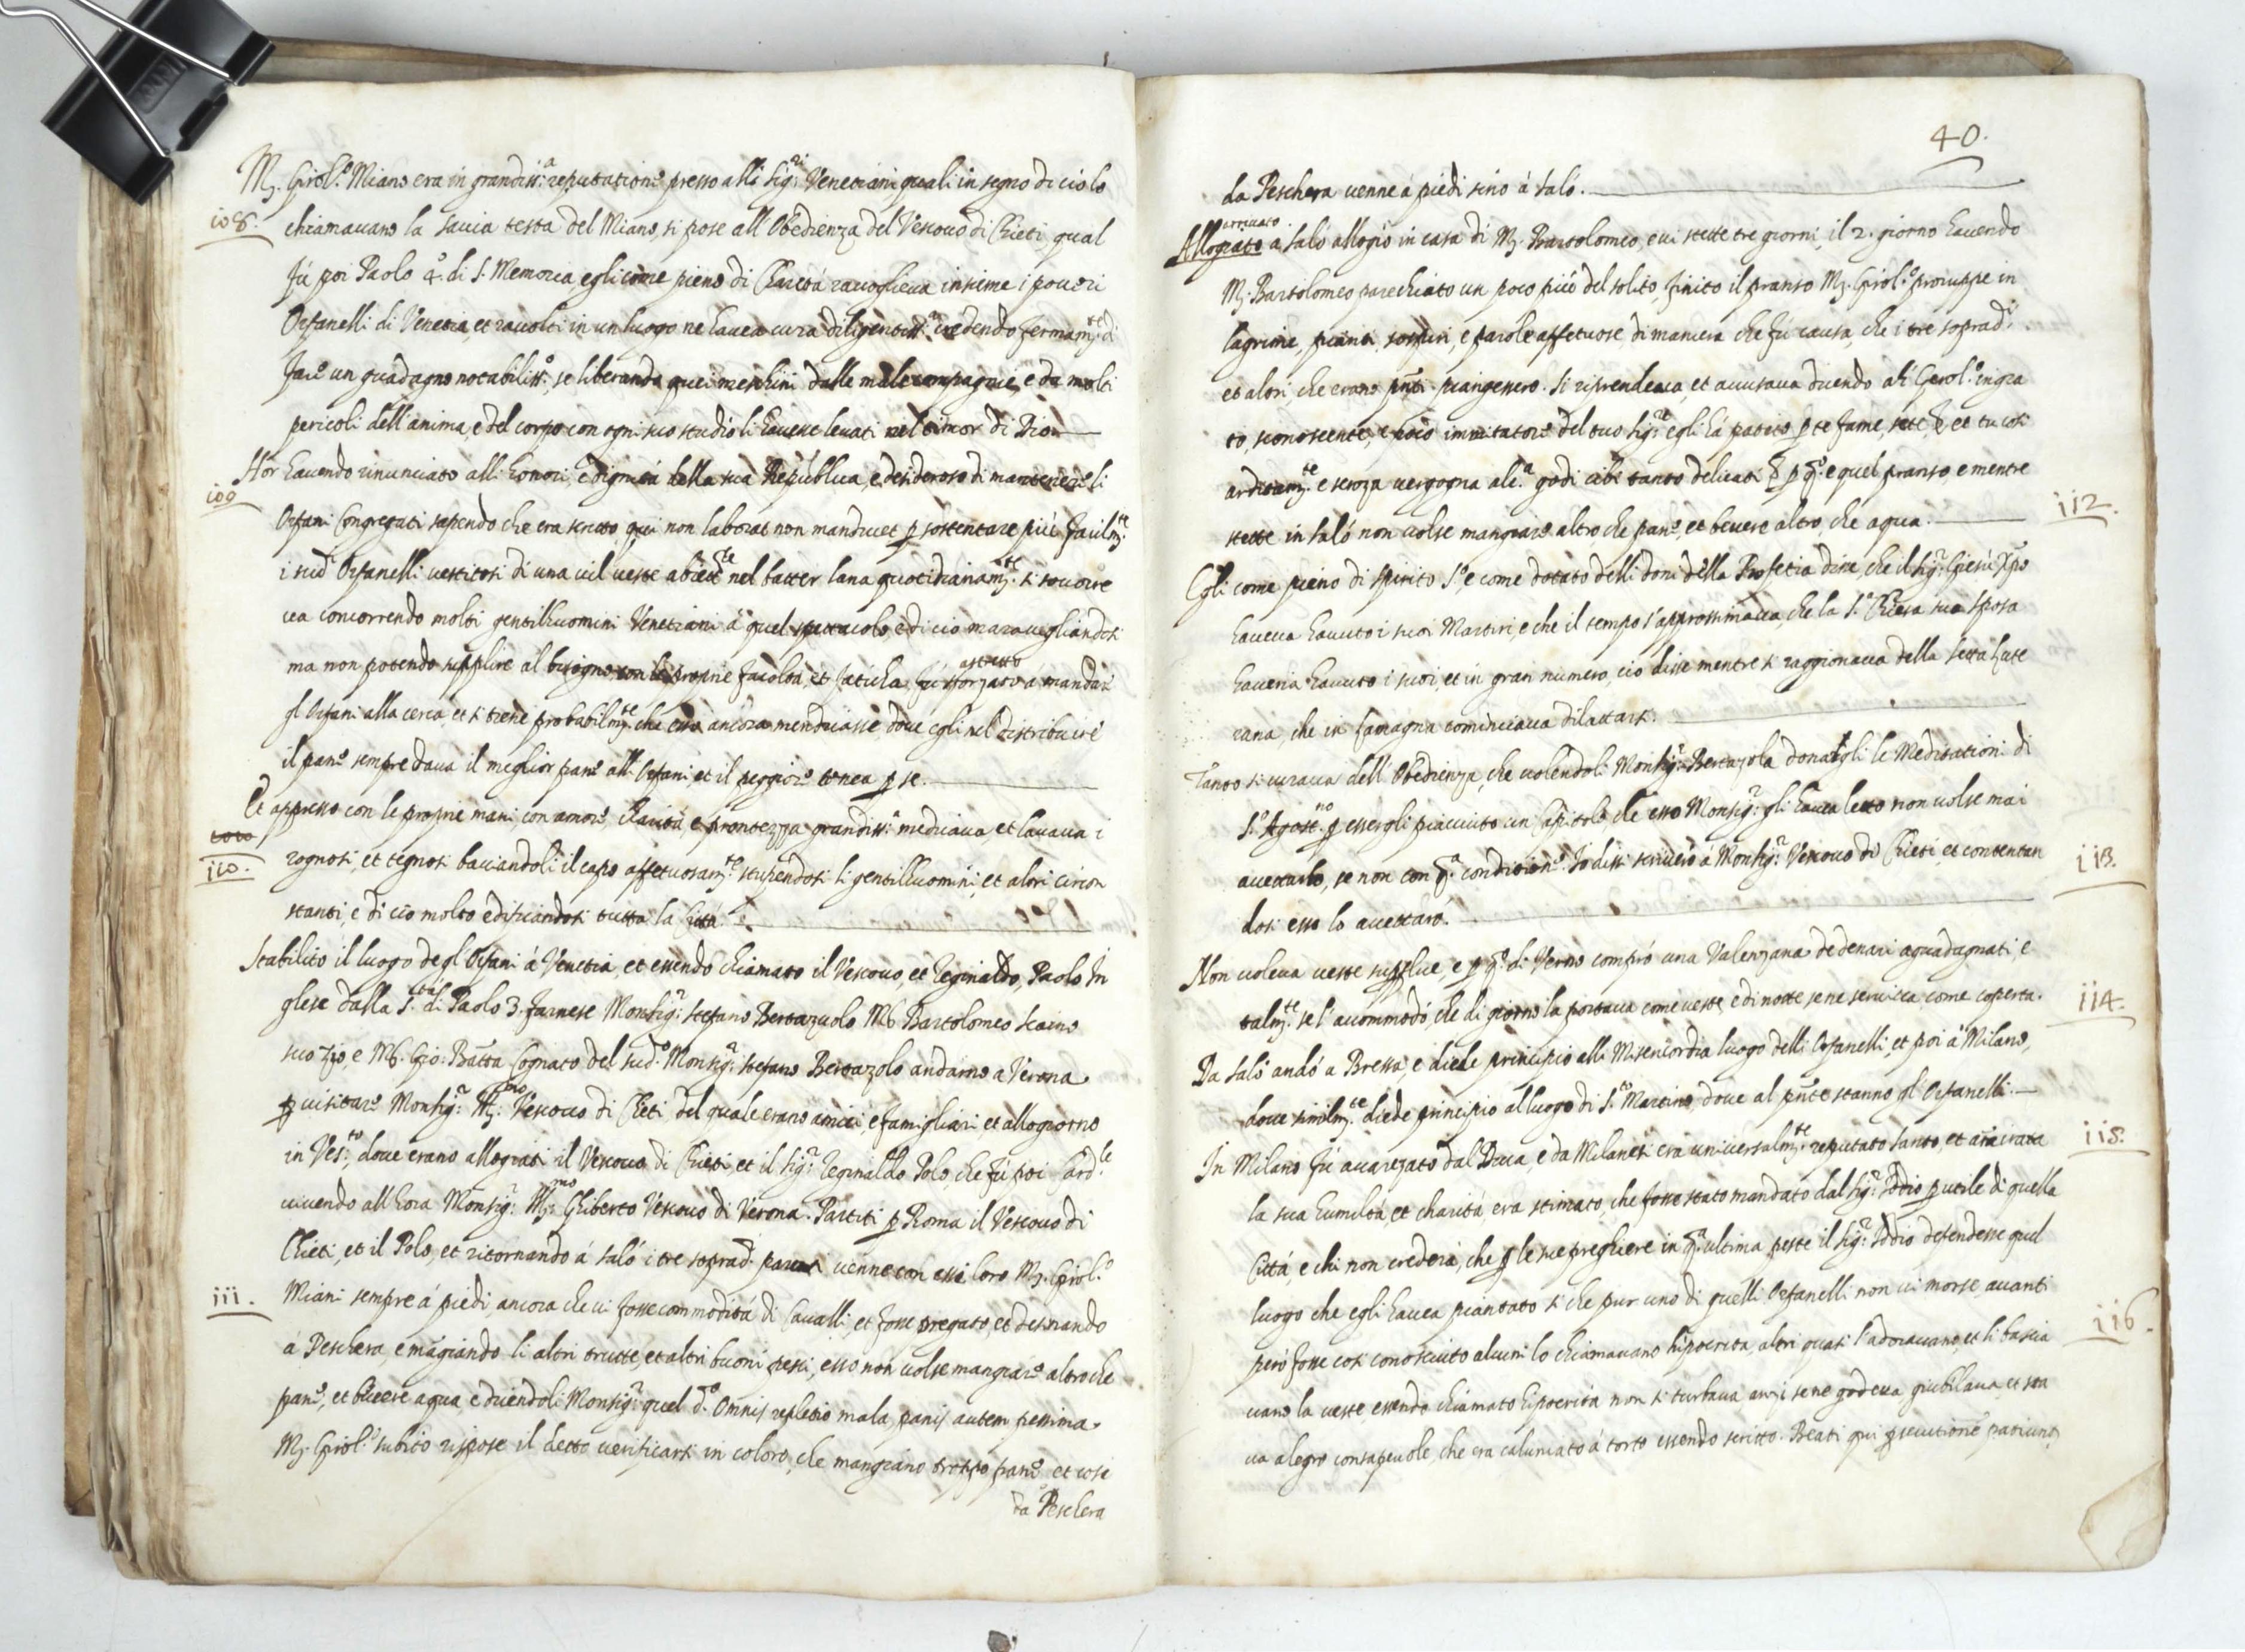 M. Girol.º Miano era in grandiss.ª reputatione presso alli Sig.ri Venetiani quali in segno di ciò lo
108. chiamavano la savia testa del Miano, si pose all'Obedienza del Vescovo di Chieti qual
fù poi Paolo 4.º di S. Memoria egli come pieno di Charità raccoglieva insieme i poveri
Orfanelli di Venetia, et raccolti in un luogo ne havea cura diligentiss.ª credendo fermam.te di
fare un guadagno notabiliss.º, se liberando quei meschini dalle male compagnie, e da molti
pericoli dell'anima, e del corpo con ogni suo studio li havesse levati nel timor di Dio
Hor havendo rinunciato alli honori, e dignità della sua Republica, e desideroso di mantenere li
109 Orfani Congregati sapendo che era scritto, qui non laborat non manducet p sostentare più facilm.te
i sud.i Orfanelli vestitosi di una vil veste nel batter lana quotidianam.te si
concorrendo molti gentilhuomini Venetiani à quel spettacolo, e di ciò maravegliandosi
ma non potendo supplire al bisogno con le proprie facoltà, et faticha fù sforzato astretto à mandare
gl'Orfani alla cerca, et si tiene probabilm.te che esso ancora mendicasse, dove egli nel distribuire
il pane sempre dava il meglior pane alli Orfani, et il peggiore tenea p se.
Et appresso con le proprie mani, con amore, Charità e prontezza grandiss.ª medicava, et lavava i
110. rognosi, et tegnosi baciandoli il capo affetuosam.te stupendosi li gentilhuomini, et altri circon
stanti, e di ciò molto edificandosi tutta la Città.
Stabilito il luogo degl'Orfani à Venetia, et essendo chiamato il Vescovo, et Reginaldo, Paolo In
glese dalla S.tà di Paolo 3. Farnese Monsig.r Stefano Bertazuolo M. Bartolomeo Scaino
suo zio, e M. Gio: Batta Cognato del sud.º Monsig.r Stefano Bertazolo andarno a Verona
p visitare Monsig.r Vescovo di Chieti del quale erano amici, e famigliari et allogiorno
in Ves.to, dove erano allogiati il Vescovo di Chieti, et il Sig.r Reginaldo Polo, che fù poi Card.le
vivendo all'hora Monsig.r Ghiberto Vescovo di Verona. Partiti p Roma il Vescovo di
Chieti, et il Polo, et ritornando à Salò i tre soprad. venne con essi loro M. Girol.º
111. Miani sempre à piedi, ancora che vi fosse commodità di Cavalli, et fosse pregato, et desinando
à Peschera, e mägiando li altri trutte, et altri buoni pesci, esso non volse mangiare altro che
pane, et bevere aqua, e dicendoli Monsig.r quel d.º Omnis repletio mala, panis autem pessima.
M. Girol.º subito rispose il detto verificarsi in coloro, che mangiano troppo pane et cosi
da Peschera
40.
da Peschera venne à piedi sino à Salò.
Allogiato arrivato à Salò allogiò in casa di M. Bartolomeo, e vi stette tre giorni, il 2. giorno havendo
M. Bartolomeo parechiato un poco più del solito, finito il pranso M. Girol.º proruppe in
lagrime, pianti, sospiri, e parole affetuose, di maniera che fù causa, che i tre soprad.i
et altri, che erano pnti piangessero. Si riprendeva, et accusava dicendo ahi Gerol.º ingra
to, sconoscente, e poco immitatore del tuo Sig.re egli hà patito p te fame, sete, & et tu cosi
arditam.te e senza vergogna alc.ª godi cibi tanto delicati & p q.º e quel pranso, e mentre
112. stette in Salò non volse mangiare altro che pane, et bevere altro, che aqua.
Egli come pieno di Spirito S.º, e come dotato delli doni della Profetia disse, che il Sig.r Giesù Xpo
haveva havuto i suoi Martiri, e che il tempo s'approssimava, che la S.ª Chiesa sua Sposa
haveria havuto i suoi, et in gran numero, ciò disse mentre si raggionava della setta Lute
rana, che in cominciava dilattarsi.
Tanto si curava dell'Obedienza, che volendoli Monsig.r Bertazola donargli le Meditationi di
S.º Agost.no p essergli piacciuto un Capitolo, che esso Monsig.r gli havea letto non volse mai
113. accettarlo, se non con q.ª conditione. Io disse scriverò à Monsig.r Vescovo di Chieti, et contentan
dosi esso lo accettarò.
Non voleva veste suplice, e p q.º di Verno comprò una Valenzana de denari aguadagnati e
114. talm.te se l'accommodò, che di giorno la portava come veste, e di notte se ne serviva come coperta.
Da Salò andò a Bressa, e diede principio alli Misericordia luogo delli Orfanelli, et poi à Milano,
dove similm.te diede principio al luogo di S.to Martino dove al pnte stanno gl'Orfanelli.
115. In Milano fù accarezato dal Duca, e da Milanesi era universalm.te reputato santo, et amirata
la sua humiltà, et charità, era stimato, che fosse stato mandato dal Sig.r Iddio p utile di quella
Città, e chi non crederà, che p le sue preghiere in q.ª ultima peste il Sig.r Iddio defendesse quel
luogo che egli havea piantato si che pur uno di quelli Orfanelli non vi morse, avanti
116. però fosse cosi conosciuto alcuni lo chiamavano hipocrita, altri quasi l'adoravano, et li bascia
vano la veste essendo chiamato hipocrita non si turbava anzi se ne godeva giubilava et sta
va alegro consapevole che era caluniato à torto essendo scritto. Beati qui psecutione patiunt